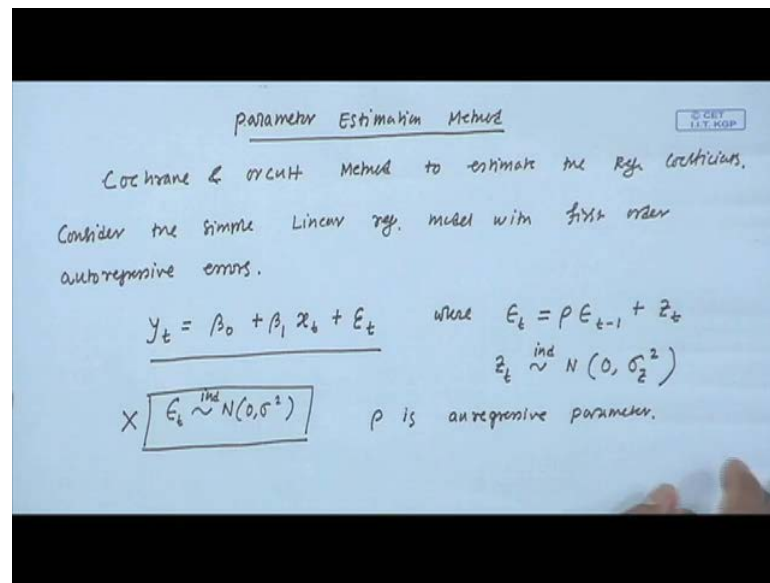 Parameter Estimation Method
© CET
I.I.T. KGP
Cochrane & orcutt Method to estimate the Reg. coefficients.
Consider the simple Linear reg. model with first order
autoregressive errors.
y_t = β₀ + β₁ x_t + ε_t where ε_t = ρ ε_{t-1} + z_t
z_t ~^{ind} N(0, σ_z²)
X ε_t ~^{ind} N(0, σ²) ρ is autoregressive parameter.